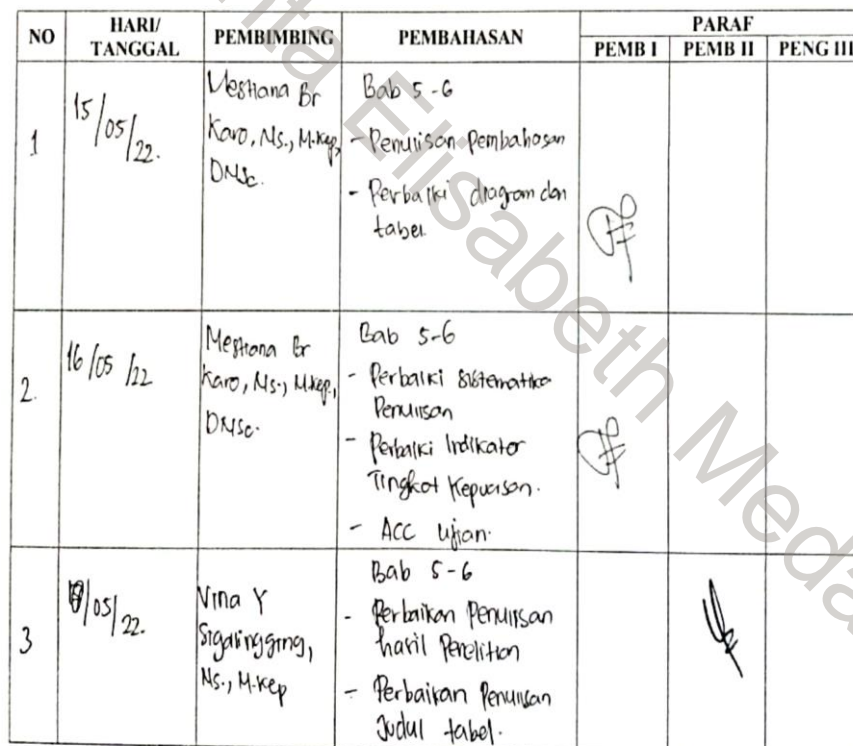 NO HARI/ TANGGAL PEMBIMBING PEMBAHASAN PARAF
PEMB I PEMB II PENG III
1 15/05/22. Mestiana Br Karo, Ns., M.Kep, DNSc.
Bab 5-6
- Penulisan Pembahasan
- Perbaiki diagram dan
tabel.
2. 16/05/22 Mestiana Br Karo, Ns., M.Kep., DNSc.
Bab 5-6
- Perbaiki Sistematika
Penulisan
- Perbaiki Indikator
Tingkat Kepuasan.
- ACC Ujian.
3 /05/22. Vina Y Sigalingging, Ns., M.Kep
Bab 5-6
- Perbaikan Penulisan
hasil Penelitian
- Perbaikan Penulisan
Judul tabel.
ta Elisabeth Meda